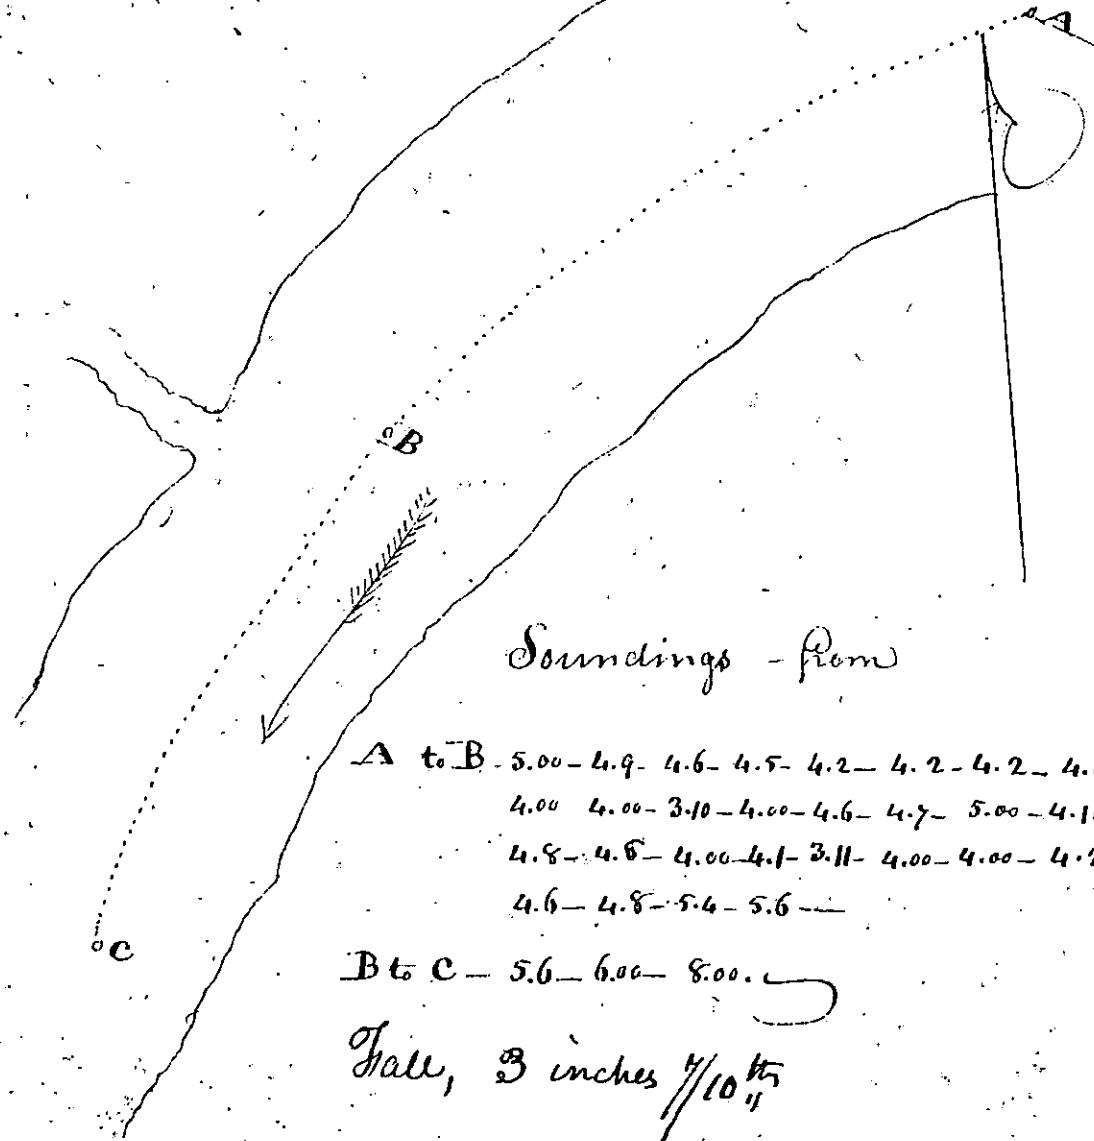 A
B
Soundings - from
A to B - 5.00 - 4.9 - 4.6 - 4.5 - 4.2 - 4.2 - 4.2 - 4.
4.00 4.00 - 3.10 - 4.00 - 4.6 - 4.7 - 5.00 - 4.1
4.8 - 4.6 - 4.00 - 4.1 - 3.11 - 4.00 - 4.00 - 4.
4.6 - 4.8 - 5.4 - 5.6 -
C
B to C - 5.6 - 6.00 - 8.00.
Fall, 3 inches 7/10ths